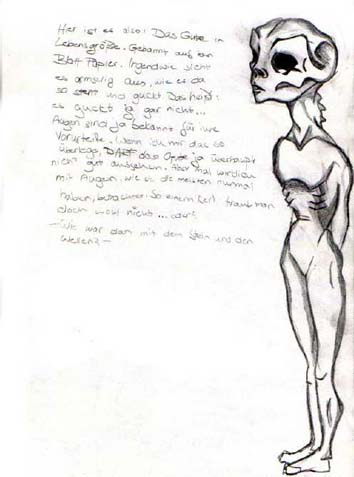 Hier ist es also! Das Gute in
Lebensgröße. Gebannt auf ein
Blatt Papier. Irgendwie sieht
es armselig aus, wie es da
so steht und guckt. Das heißt:
es guckt ja gar nicht...
Augen sind ja bekannt für ihre
Vorurteile. Wenn ich mir das so
überleg, DARF das Gute ja überhaupt
nicht gut aussehen. Aber mal wirklich
mit Augen, wie sie die meisten nunmal
haben, betrachtet: So einem Kerl traut man
doch wohl nicht... oder?
- Wie war das mit dem und den
Wellen? -